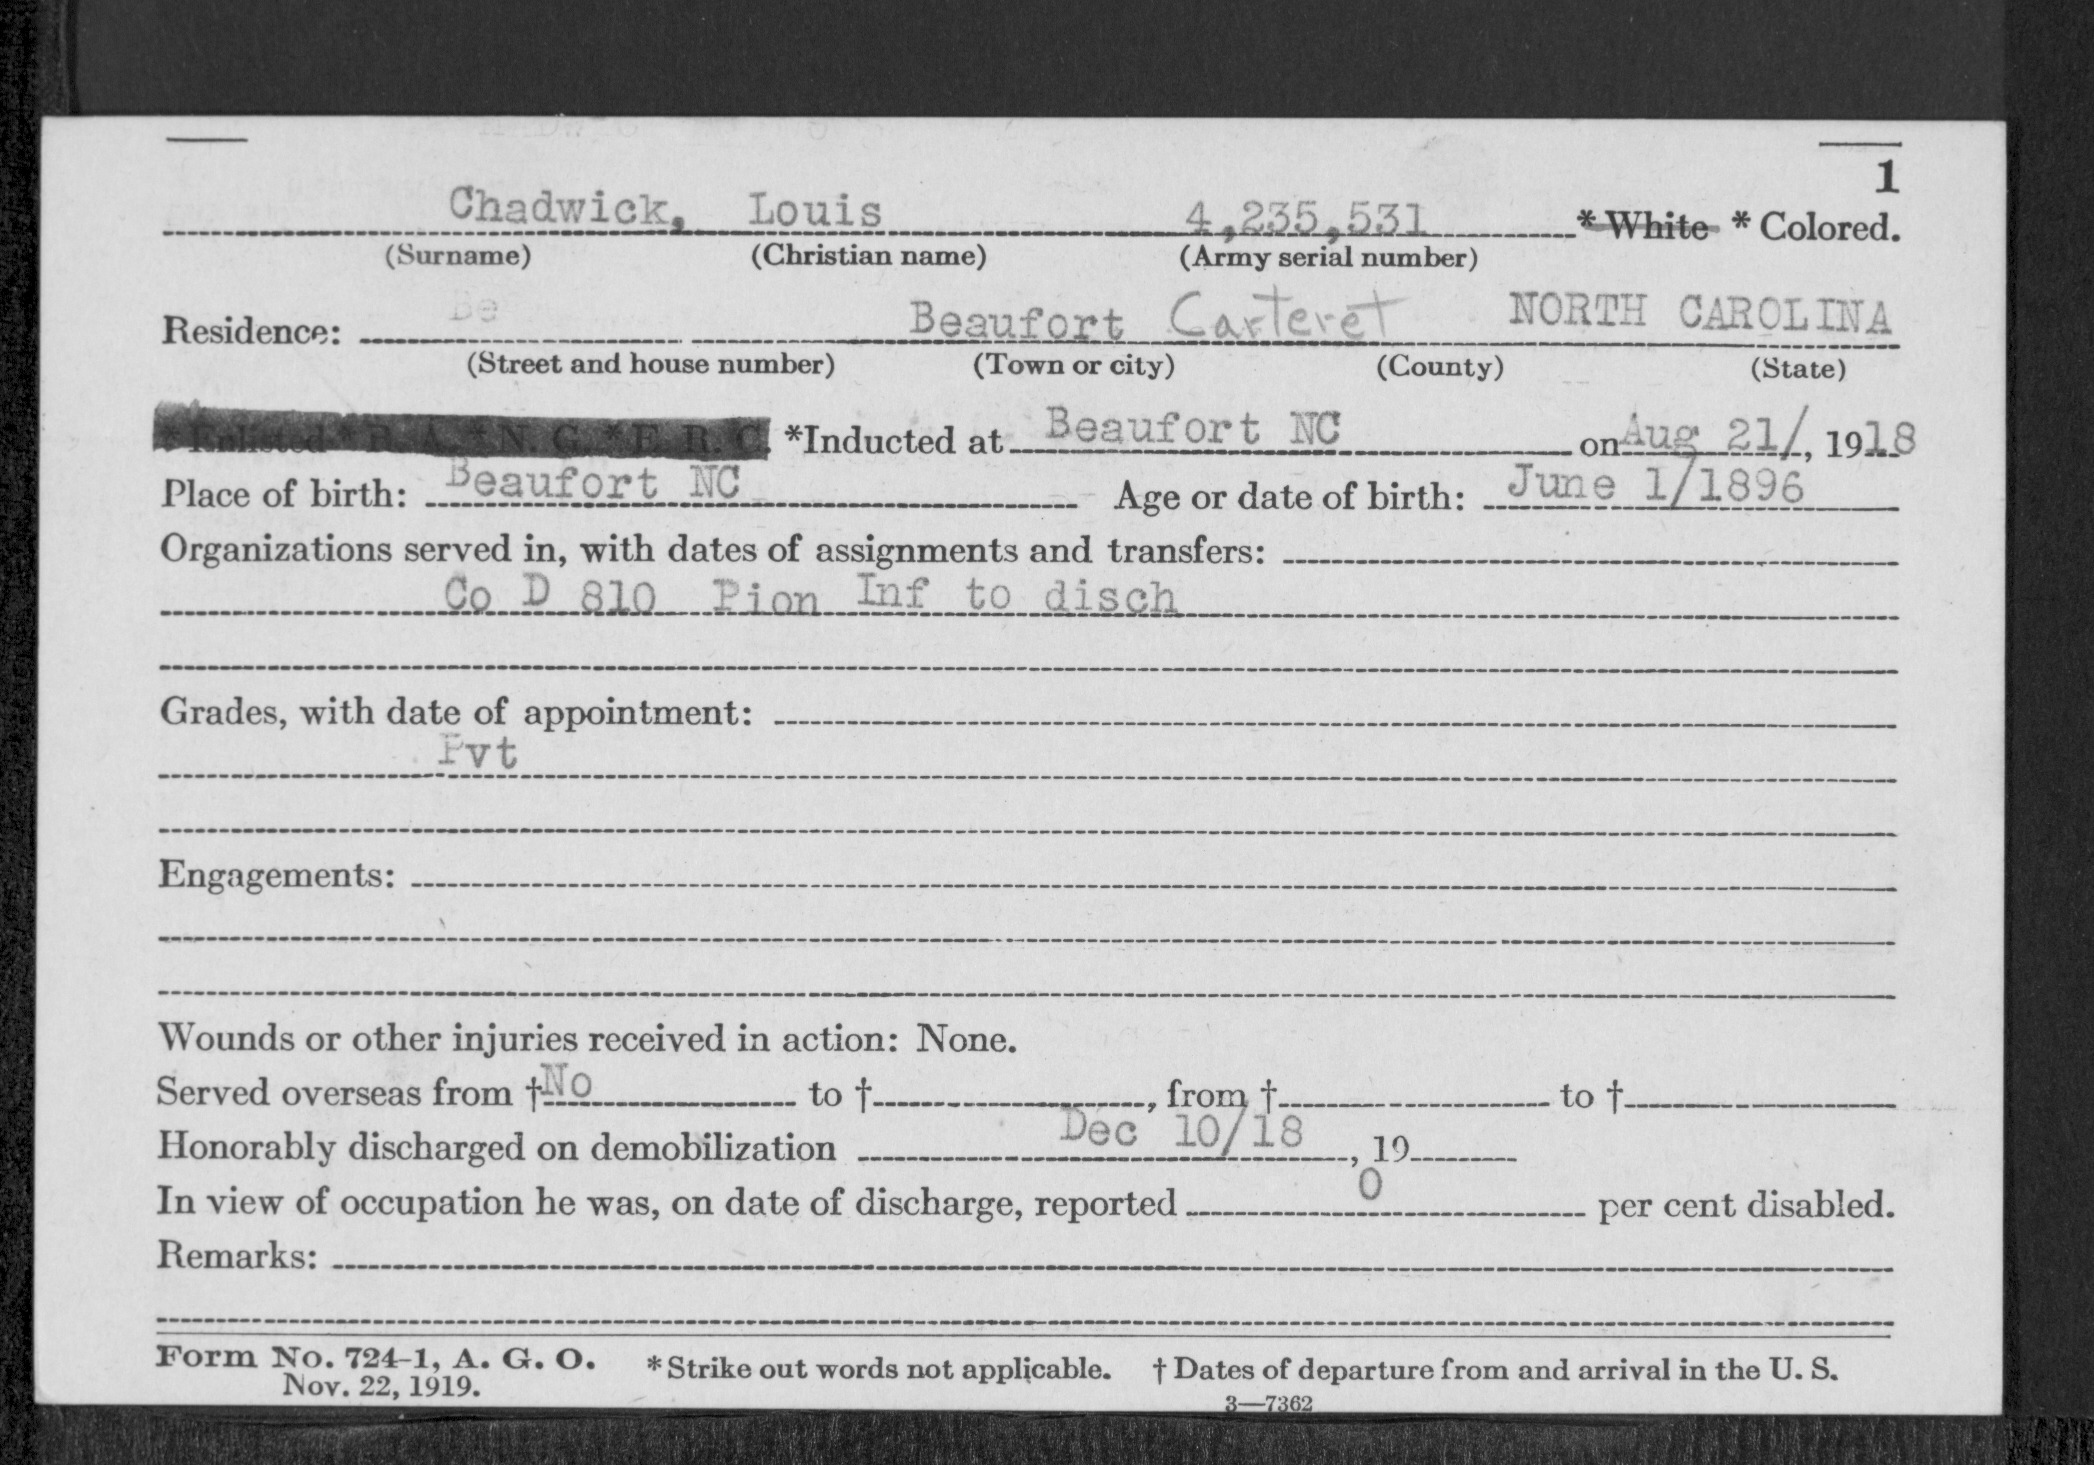 1
Chadwick, Louis 4,235,531 * White * Colored.
(Surname) (Christian name) (Army serial number)
Be
Residence: Beaufort Carteret NORTH CAROLINA
(Street and house number) (Town or city) (County) (State)
* Enlisted * R. A. * N. G. * E. R. C. *Inducted at Beaufort NC on Aug 21/, 1918
Place of birth: Beaufort NC Age or date of birth: June 1/1896
Organizations served in, with dates of assignments and transfers:
Co D 810 Pion Inf to disch
Grades, with date of appointment:
Pvt
Engagements:
Wounds or other injuries received in action: None.
Served overseas from †No to †, from † to †
Honorably discharged on demobilization Dec 10/18, 19
In view of occupation he was, on date of discharge, reported 0 per cent disabled.
Remarks:
Form No. 724-1, A. G. O. * Strike out words not applicable. † Dates of departure from and arrival in the U. S.
Nov. 22, 1919.
3—7362